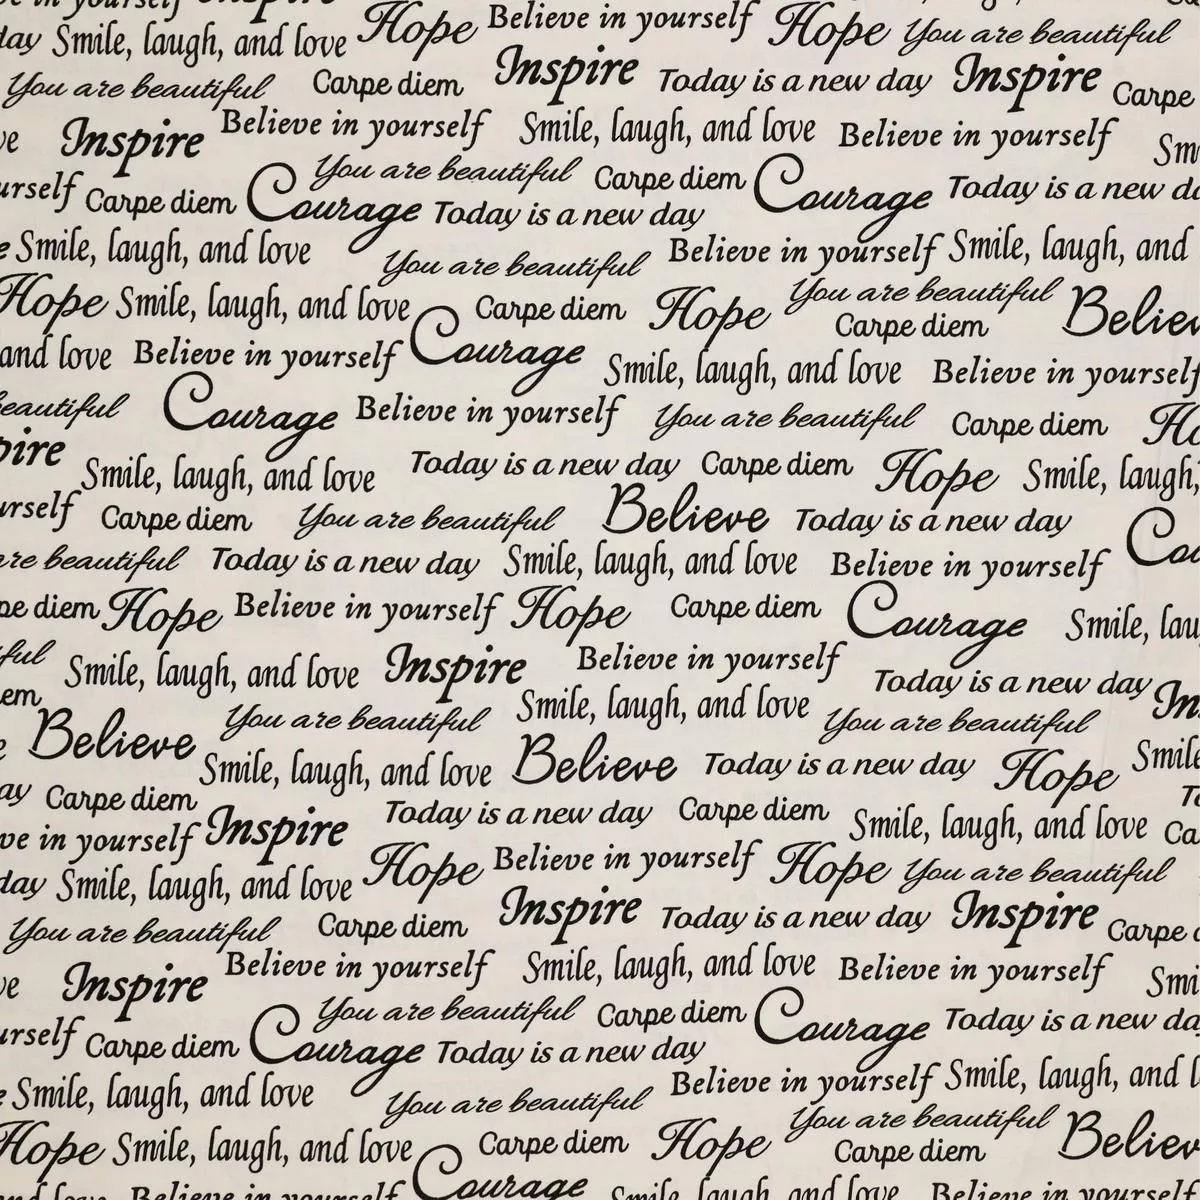 in yourself Inspire
day Smile, laugh, and love Hope Believe in yourself Hope You are beautiful
You are beautiful Carpe diem Inspire Today is a new day Inspire Carpe
Inspire Believe in yourself Smile, laugh, and love Believe in yourself
You are beautiful Carpe diem
Carpe diem Courage Today is a new day Courage Today is a new
Smile, laugh, and love You are beautiful Believe in yourself Smile, laugh, and
Hope Smile, laugh, and love Carpe diem Hope You are beautiful Believe
Carpe diem
and love Believe in yourself Courage Smile, laugh, and love Believe in yourself
beautiful Courage Believe in yourself You are beautiful Carpe diem
Smile, laugh, and love Today is a new day Carpe diem Hope Smile, laugh,
Carpe diem You are beautiful Believe Today is a new day
are beautiful Today is a new day Smile, laugh, and love Believe in yourself
diem Hope Believe in yourself Hope Carpe diem Courage Smile,
Smile, laugh, and love Inspire Believe in yourself Today is a new day
Believe You are beautiful Smile, laugh, and love You are beautiful
Smile, laugh, and love Believe Today is a new day Hope Smile
Carpe diem Today is a new day Carpe diem Smile, laugh, and love
in yourself Inspire
day Smile, laugh, and love Hope Believe in yourself Hope You are beautiful
You are beautiful Carpe diem Inspire Today is a new day Inspire Carpe
Inspire Believe in yourself Smile, laugh, and love Believe in yourself
You are beautiful Carpe diem
Carpe diem Courage Today is a new day Courage Today is a new
Smile, laugh, and love You are beautiful Believe in yourself Smile, laugh, and
Hope Smile, laugh, and love Carpe diem Hope You are beautiful Believe
Carpe diem
Believe in yourself Courage Smile, laugh, and love Believe in yourself